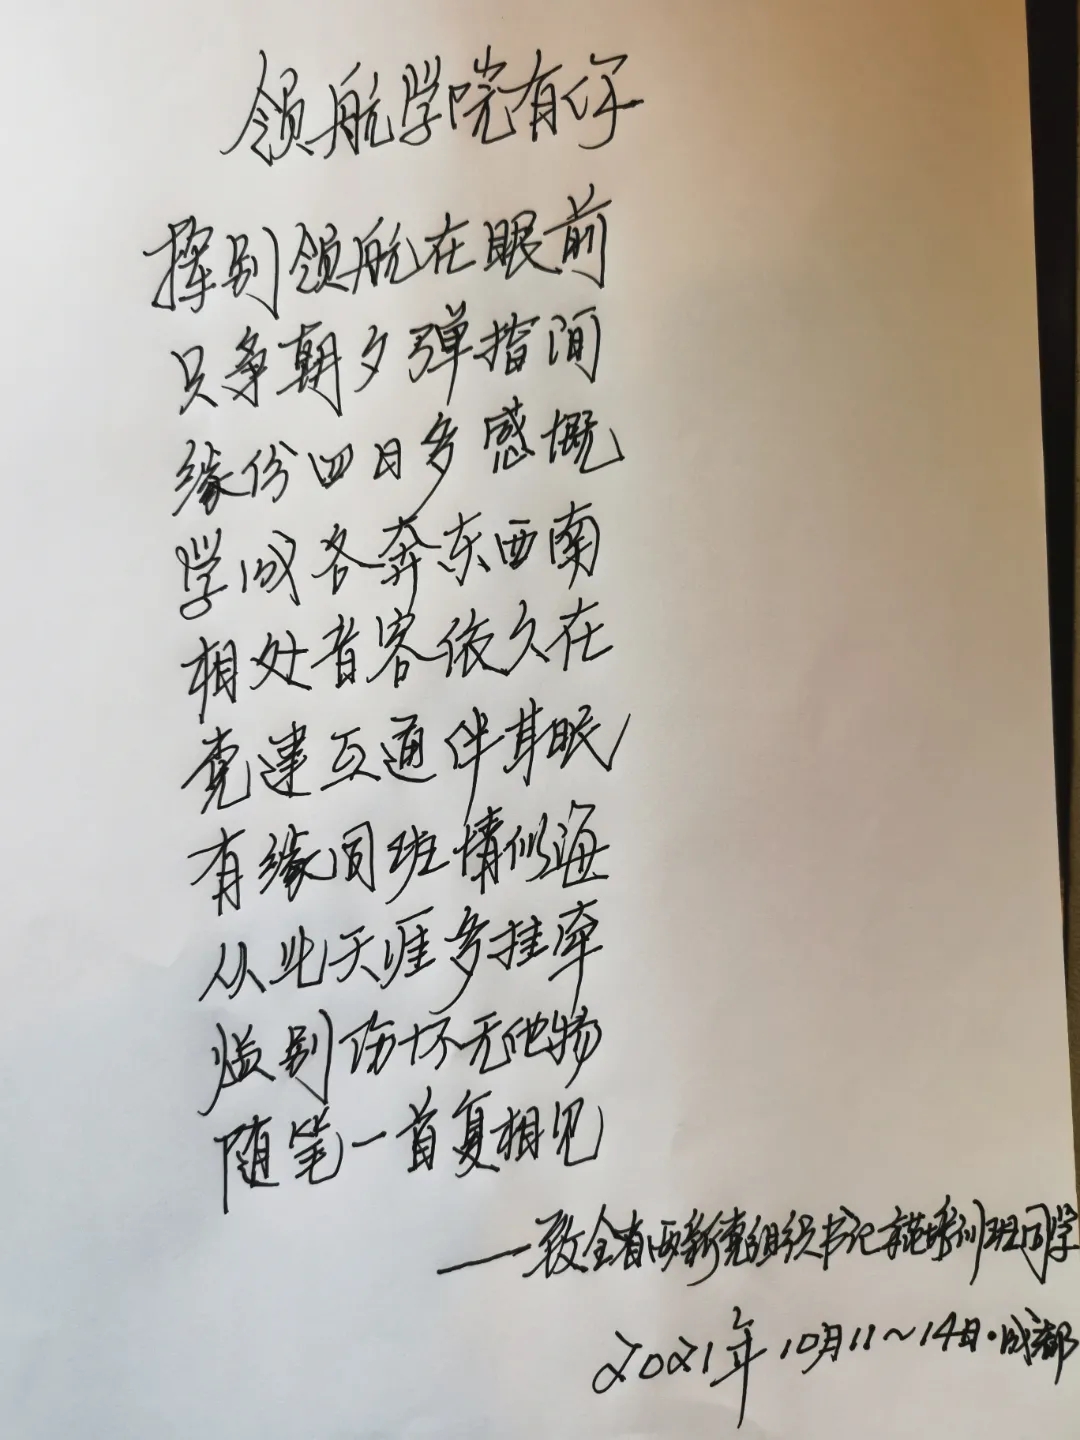 领航学院有你
挥别领航在眼前
只争朝夕弹指间
缘份四日多感慨
学成各奔东西南
相处音容依久在
党建互通伴耳眠
有缘同班情似海
从此天涯多挂牵
临别伤怀无他物
随笔一首复相见
——致全省两新党组织书记示范培训班同学
2021年10月11~14日·成都